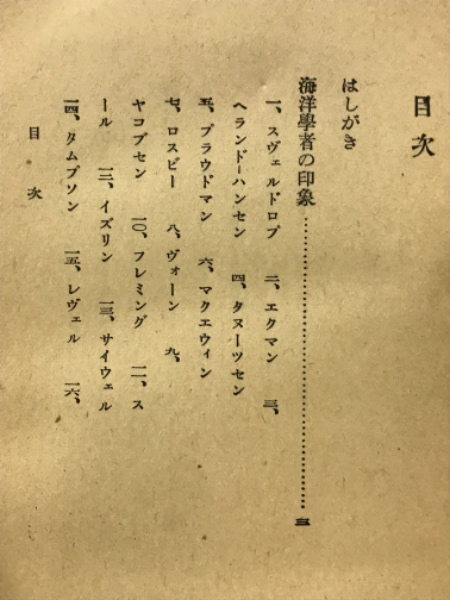 目次
はしがき
海洋學者の印象……………………………三
一、スヴェルドロプ　二、エクマン　三、
ヘランド＝ハンセン　四、タヌーツセン
五、プラウドマン　六、マクエウィン
七、ロスビー　八、ヴォーン　九、
ヤコブセン　一〇、フレミング　一一、ス
ール　一二、イズリン　一三、サイウェル
一四、タムプソン　一五、レヴェル　一六、
目次